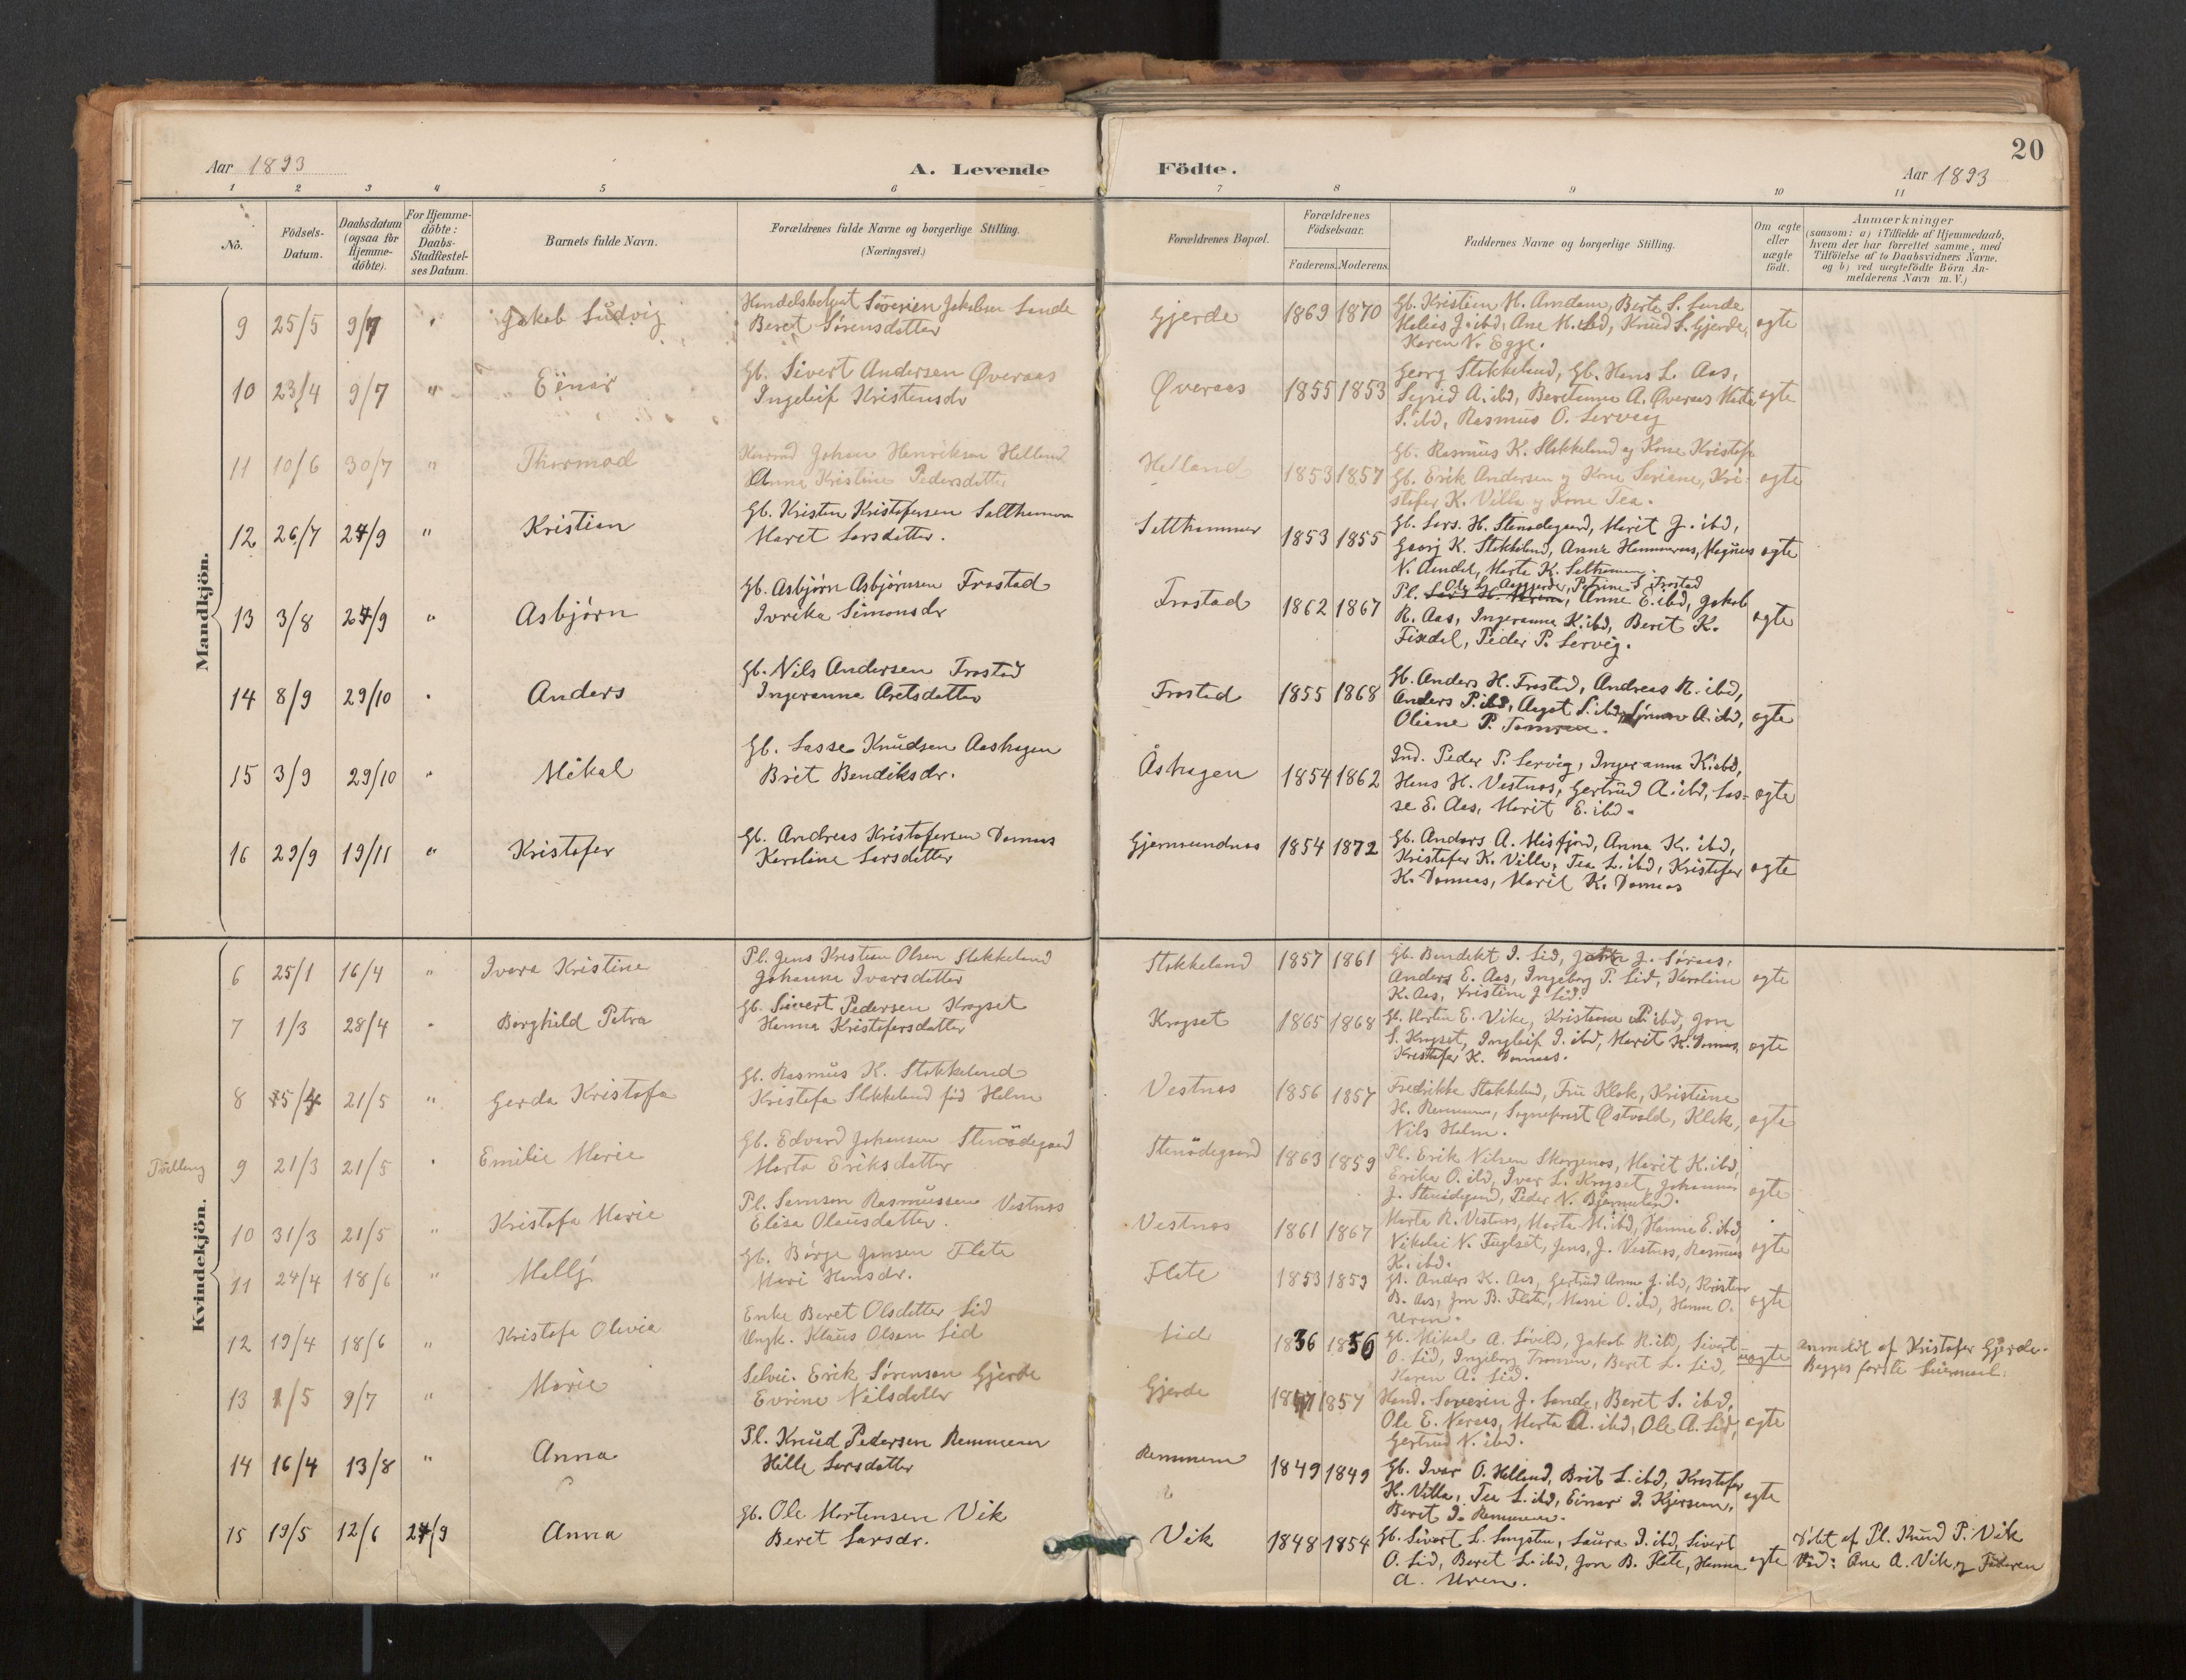 20
Aar 1893
A. Levende
Födte.
Aar 1893
1 2 3 4 5 6 7 8 9 10 11
No.
Födsels-Datum.
Daabsdatum (ogsaa for Hjemme-döbte).
For Hjemme-döbte: Daabs-Stadfæstel-ses Datum.
Barnets fulde Navn.
Forældrenes fulde Navne og borgerlige Stilling.
(Næringsvei.)
Forældrenes Bopæl.
Forældrenes Födselsaar.
Faderens. Moderens.
Faddernes Navne og borgerlige Stilling.
Om ægte eller uægte födt.
Anmærkninger
(saasom: a) i Tilfælde af Hjemmedaab,
hvem der har forrettet samme, med
Tilföielse af to Daabsvidners Navne.
og b) ved uægtefödte Börn An-
melderens Navn m. V.)
Mandkjön.
9 25/5 9/7 " Jakob Ludvig
Handelsbetjent Sørerien Jakobsen Sande
Beret Sørensdatter
Gjerde 1869 1870
Gb. Kristian M. Amdam, Berte S. Sande
Helias J. ibd, Ane M. ibd, Knud S. Gjerde,
Karen N. Egge.
egte
10 23/4 9/7 " Einar
Gb. Sivert Andersen Øveraas
Ingeleif Kristensdr
Øveraas 1855 1853
Georg Stokkeland, Gb. Hans L. Aas,
Sigrid A. ibd, Beretanna A. Øveraas
S. ibd, Rasmus O. Serveig
egte
11 10/6 30/7 " Thormod
Konrad Johan Henriksen Helland
Anna Kristine Pedersdatter
Helland 1853 1857
Gb. Rasmus K. Stokkeland og Kone Kristofa
Gb. Erik Andersen og Kone Seriane, Kri-
stofer K. Villa og Kone Tea.
egte
12 26/7 24/9 " Kristian
Gb. Kristen Kristofersen Salthammer
Maret Larsdatter.
Salthammer 1853 1855
Gb. Lars. H. Stenødegaard, Marit J. ibd,
Georg K. Stokkeland, Anne Hammeraas, Magnus
N. Amdal, Marte K. Salthammer.
egte
13 3/8 24/9 " Asbjørn
Gb. Asbjørn Asbjørnsen Frostad
Ivrika Simonsdr
Frostad 1862 1867
Ole L. Aasgjerde, Petrine S. Frostad
Pl. Anne E. ibd, Jakob
R. Aas, Ingeranna K. ibd, Beret K.
Fixdal, Peder P. Servig.
egte
14 8/9 29/10 " Anders
Gb. Nils Andersen Frostad
Ingeranna Aretsdatter
Frostad 1855 1868
Gb. Anders H. Frostad, Andreas N. ibd,
Anders P. ibd, Aagot S. ibd, A. ibd,
Oliane P. Tomren.
egte
15 3/9 29/10 " Mikal
Gb. Lasse Knudsen Aashagen
Brit Bendiksdr.
Åshagen 1854 1862
Ind. Peder P. Servig, Ingeranna K. ibd,
Hans H. Vestnes, Gertrud A. ibd, Las-
se E. Aas, Marit E. ibd.
egte
16 29/9 19/11 " Kristofer
Gb. Andreas Kristofersen Domaas
Karoline Larsdatter
Gjermundnes 1854 1872
Gb. Anders A. Misfjord, Anna K. ibd,
Kristofer K. Villa, Tea L. ibd, Kristofer
K. Domaas, Marit K. Domaas
egte
Kvindekjön.
6 25/1 16/4 " Ivara Kristine
Pl. Jens Kristian Olsen Stokkeland
Johanna Ivarsdatter
Stokkeland 1857 1861
Gb. Bendikt I. Lid, J. Søraas,
Anders E. Aas, Ingeborg P. Lid, Karoline
K. Aas, Kristine J. Lid.
egte
7 1/3 28/4 " Borghild Petra
Gb. Sivert Pedersen Kragset
Hanna Kristofersdatter
Kragset 1865 1868
Gb. Morten E. Vike, Kristiana P. ibd, Jon
S. Kragset, Ingleif I. ibd, Marit K. Domaas,
Kristofer K. Domaas.
egte
8 5/4 21/5 " Gerda Kristofa
Gb. Rasmus K. Stokkeland
Kristofa Stokkeland fød Holm
Vestnes 1856 1857
Fredrikke Stokkeland, Fru Klok, Kristine
H. Remmem, Sogneprest Østvold, Klok,
Nils Holm.
egte
Tvilling
9 21/3 21/5 " Emilie Marie
Gb. Edvard Johansen Stenødegaard
Marta Eriksdatter
Stenødegaard 1863 1859
Pl. Erik Nilsen Skorgenes, Marit K. ibd,
Erika O. ibd, Ivar L. Kragset, Johannes
J. Stenødegaard, Peder N. Bjermeland.
egte
10 31/3 21/5 " Kristofa Marie
Pl. Samson Rasmussen Vestnes
Elisa Olausdatter.
Vestnes 1861 1867
Marta R. Vestnes, Marta M. ibd, Hanna E. ibd,
Nikolai N. Fuglset, Jens. J. Vestnes, Rasmus
K. ibd.
egte
11 24/4 18/6 " Mally
Gb. Børge Jensen Flate
Mari Hansdr.
Flate 1853 1859
Gb. Anders K. Aas, Gertrud Anne J. ibd, Kristen
B. Aas, Jon B. Flate, Massi O. ibd, Hanna O.
Uren.
egte
12 19/4 18/6 " Kristofa Olivia
Enke Beret Olsdatter Lid
Ungk. Klaus Olsen Lid
Lid 1836 1856
Gb. Mikal A. Søvold, Jakob N. ibd, Sivert
O. Lid, Ingeborg Tromsen, Beret L. Lid,
Karen A. Lid.
uægte
Anmeldt af Kristofer Gjerde.
Begges første Leiermaal.
13 1/5 9/7 " Marie
Selvei. Erik Sørensen Gjerde
Evrine Nilsdatter
Gjerde 1857
Hand. Soverin J. Sande, Beret S. ibd,
Ole E. Neraas, Marta A. ibd, Ole A. Lid,
Gertrud N. ibd.
egte
14 16/4 13/8 " Anna
Pl. Knud Pedersen Remmem
Hille Larsdatter
Remmem 1849 1849
Gb. Ivar O. Helland, Brit L. ibd, Kristofer
K. Villa, Tea L. ibd, Einar I. Kjersem,
Beret I. Remmem.
egte
15 19/5 12/6 24/9 Anna
Gb. Ole Mortensen Vik
Beret Larsdr.
Vik 1848 1854
Gb. Sivert L. Lingsten, Laura I. ibd, Sivert
O. Lid, Beret L. ibd, Jon B. Flate, Hanna
A. Uren.
egte
Døbt af Pl. Knud P. Vik
Vid: Ane A. Vik og Faderen